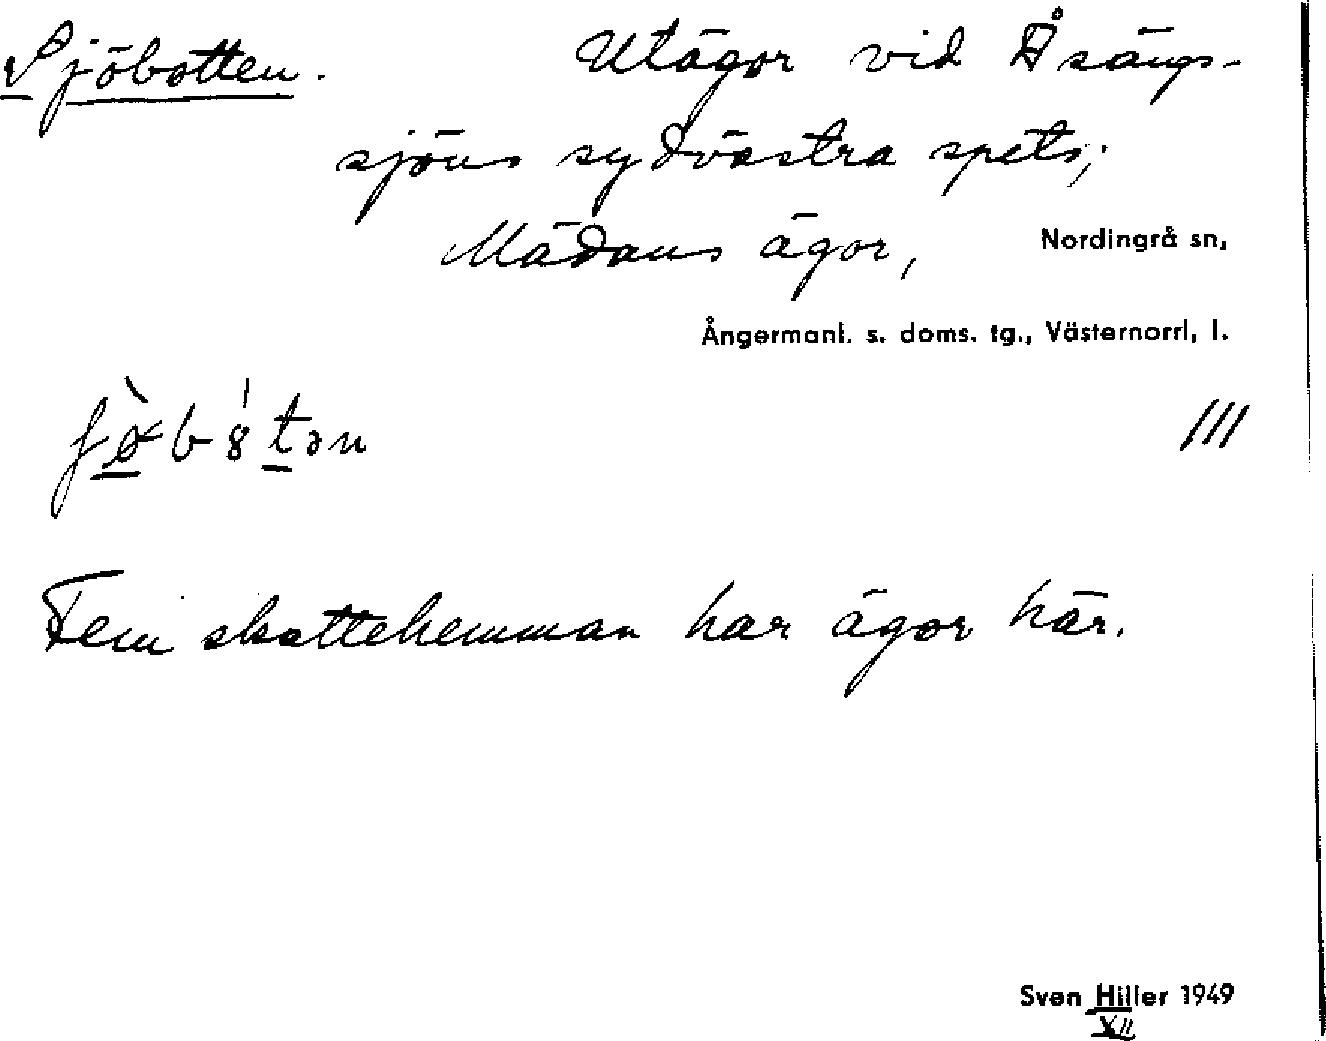 Sjöbotten. Utägor vid Åsängs-
sjöns sydvästra spets;
Mädans ägor, Nordingrå sn,
Ångermanl. s. doms. tg., Västernorrl, l.
III
Fem skattehemman har ägor här.
Sven Hiller 1949
XII